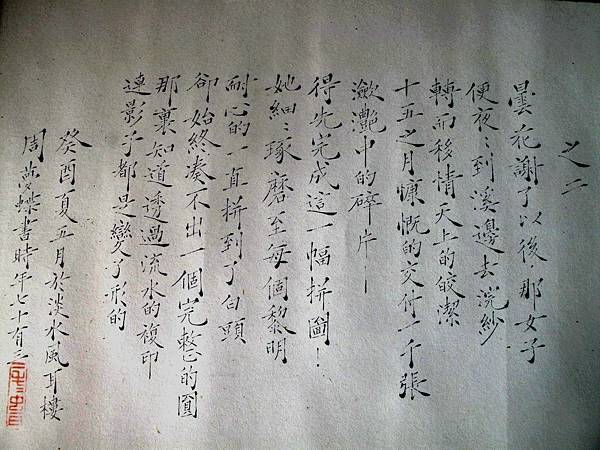 之二
曇花謝了以後，那女子
便夜々到溪邊去浣紗
轉而移情天上的皎潔
十五之月慷慨的交付一千張
瀲灩中的碎片—
得先完成這一幅拼圖！
她細々琢磨至每個黎明
耐心的一直拼到了白頭
卻始終湊不出一個完整的圓
那裏知道透過流水的複印
連影子都是變了形的
癸酉夏五月於淡水風耳樓
周夢蝶書時年七十有三